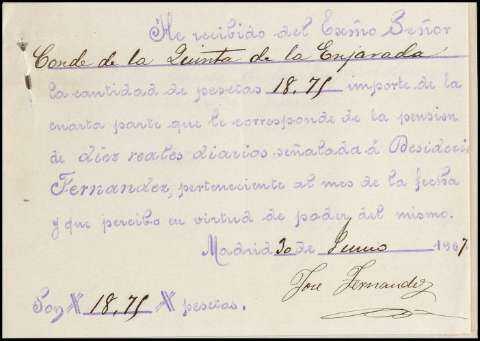 He recibido del Exmo Señor
Conde de la Quinta de la Enjarada
la cantidad de pesetas 18,75 importe de la
cuarta parte que le corresponde de la pension
de diez reales diarios señalada á Desiderio
Fernandez, perteneciente al mes de la fecha
y que percibo en virtud de poder del mismo.
Madrid 30 de Junio 1907
José Fernandez
Son # 18,75 # pesetas.